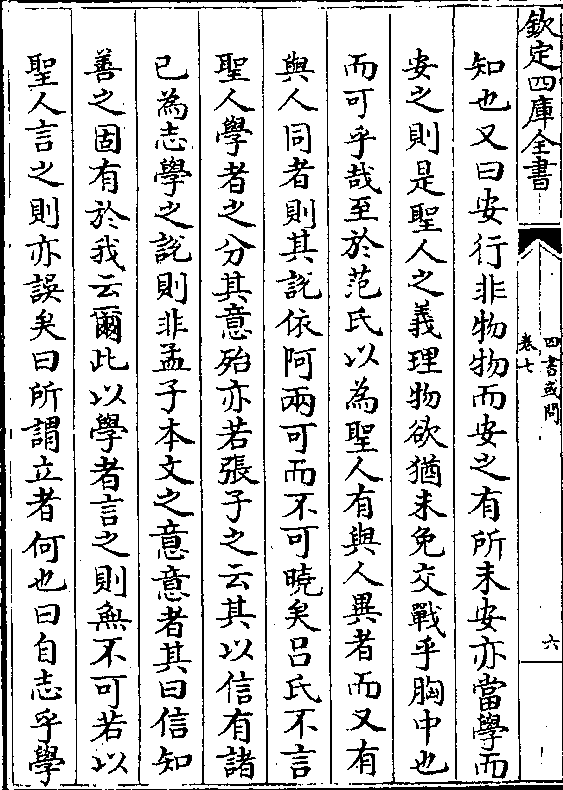 欽定四庫全書
四書或問
卷七
六
知也又曰安行非物物而安之有所未安亦當學而
安之則是聖人之義理物欲猶未免交戰乎胸中也
而可乎哉至於范氏以為聖人有與人異者而又有
與人同者則其說依阿兩可而不可曉矣吕氏不言
聖人學者之分其意殆亦若張子之云其以信有諸
已為志學之說則非孟子本文之意意者其曰信知
善之固有於我云爾此以學者言之則無不可若以
聖人言之則亦誤矣曰所謂立者何也曰自志乎學